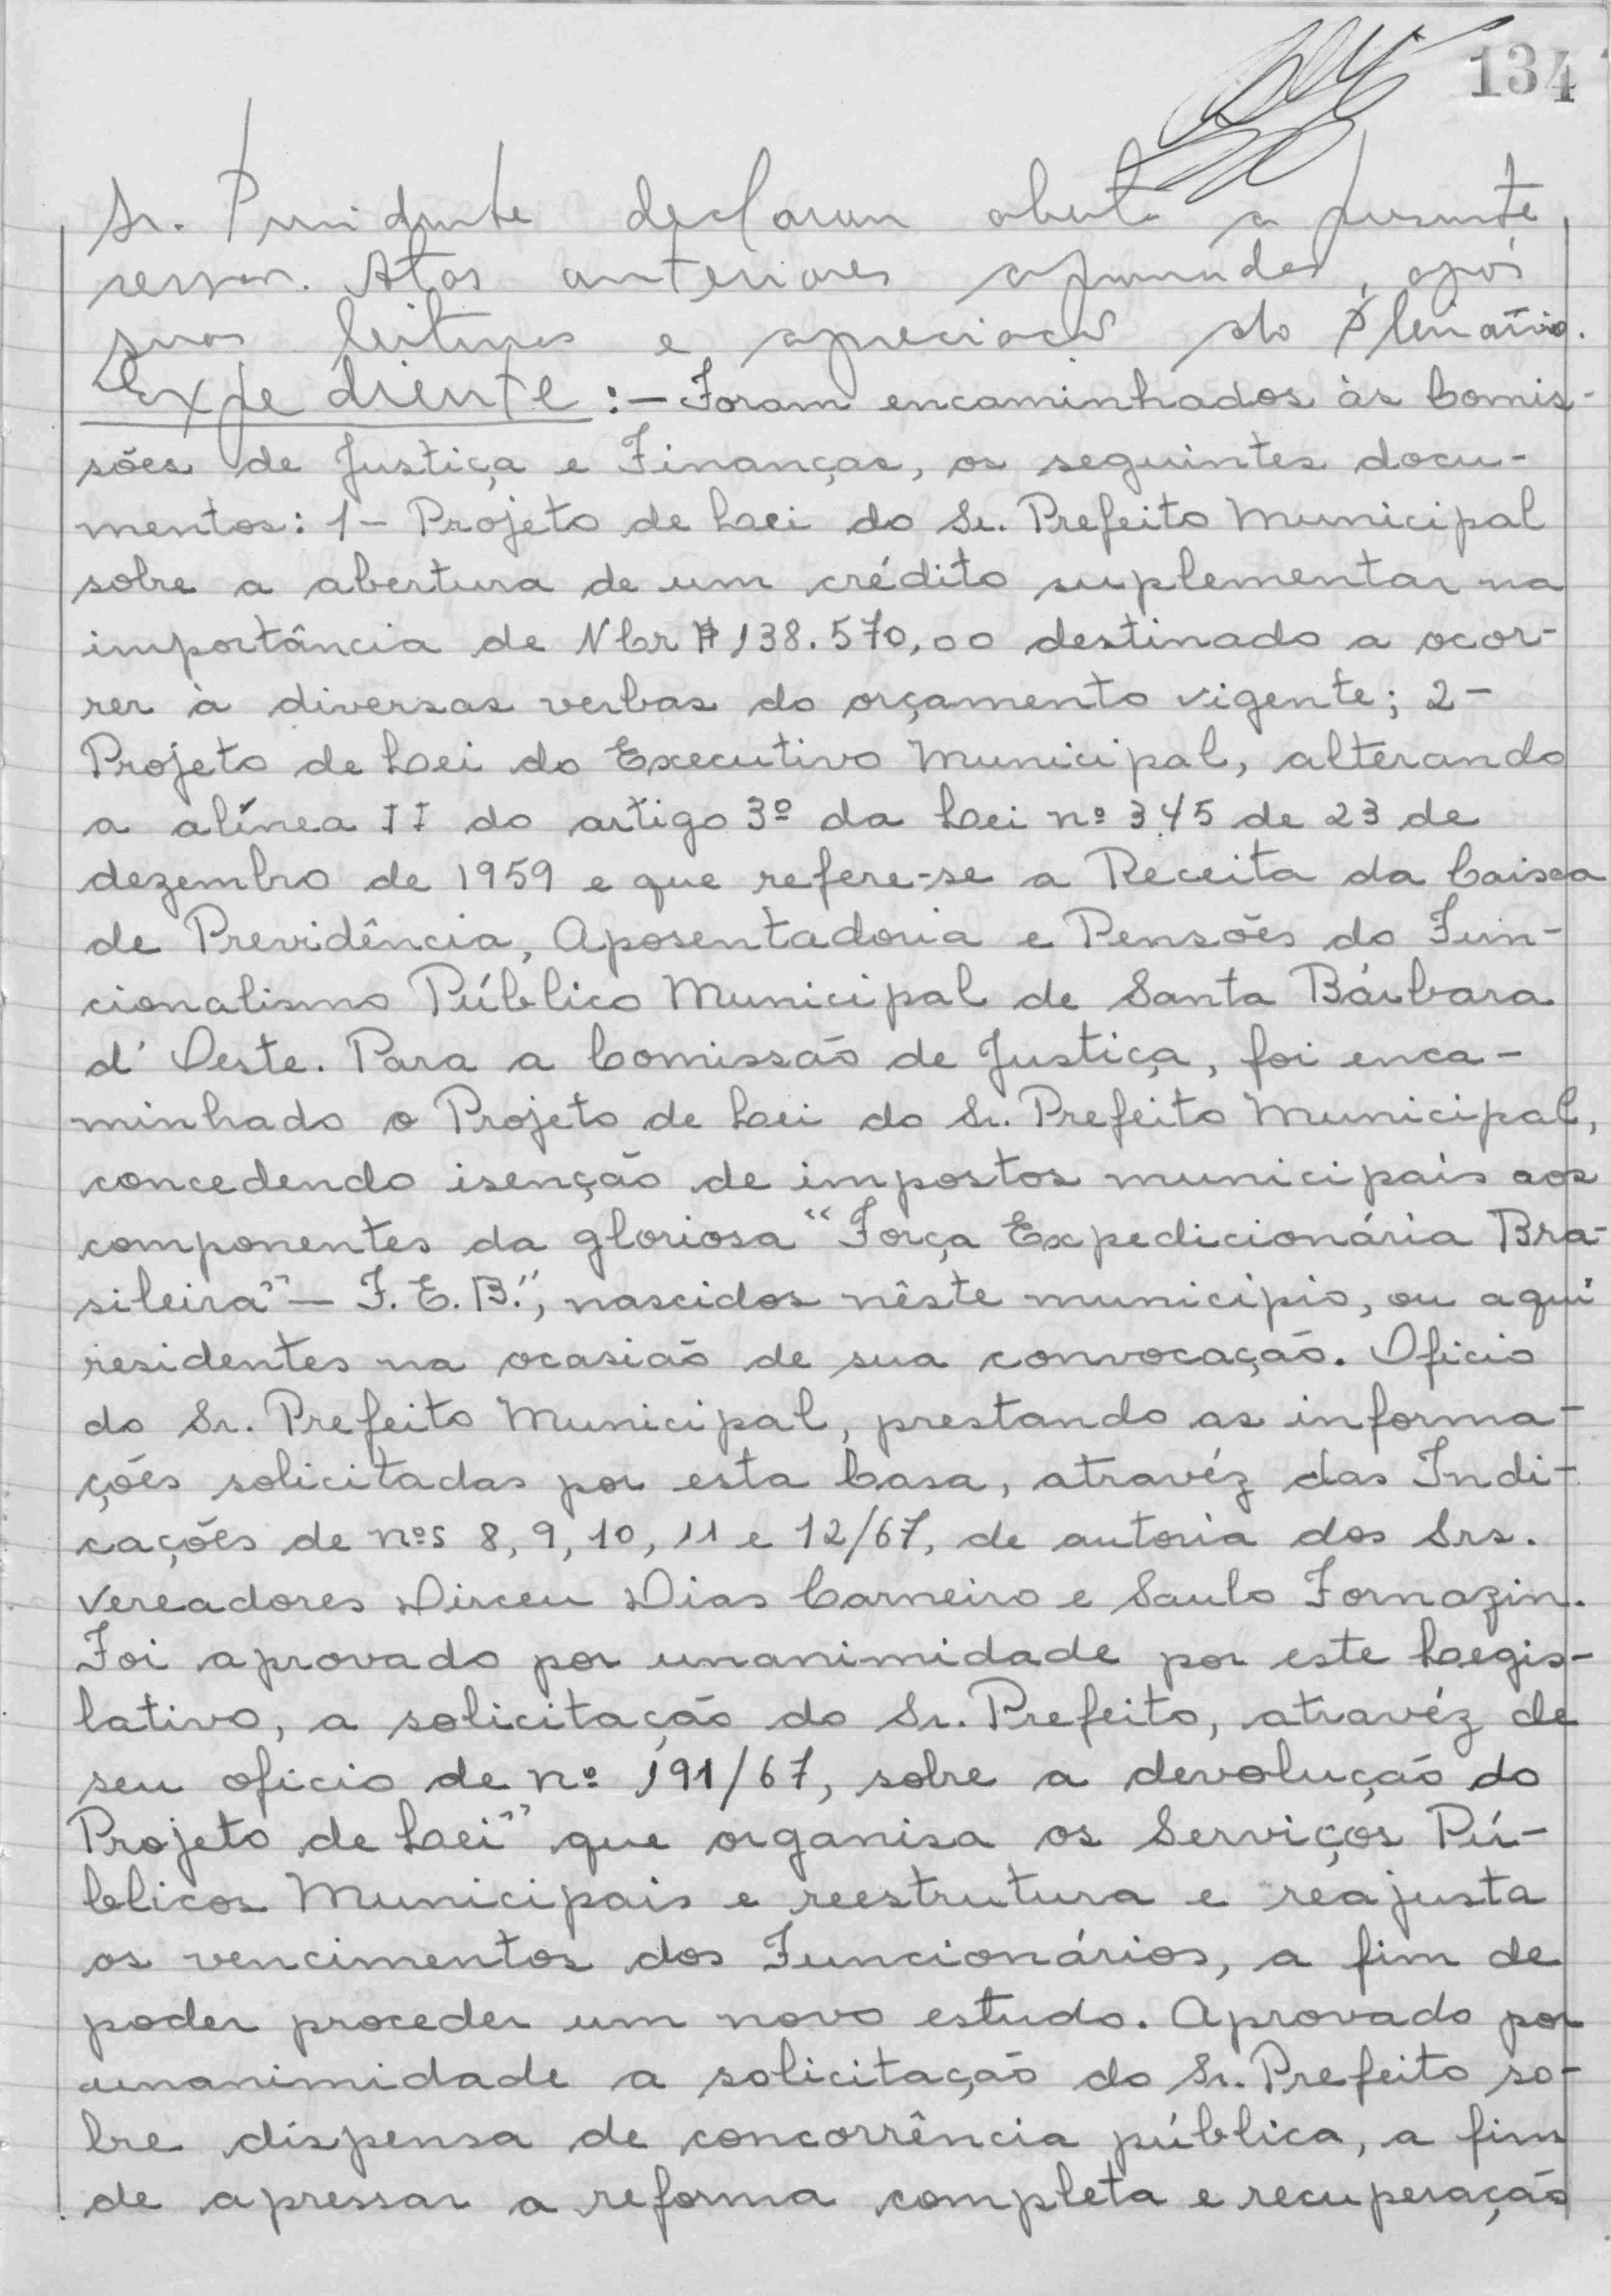 134
Sr. Presidente declarou aberta a presente
sessão. Atas anteriores aprovadas, após
suas leituras e apreciação do Plenário.
Expediente :- Foram encaminhados às Comis-
sões de Justiça e Finanças, os seguintes docu-
mentos: 1- Projeto de Lei do Sr. Prefeito Municipal
sobre a abertura de um crédito suplementar na
importância de NCr$ 138.570,00 destinado a ocor-
rer à diversas verbas do orçamento vigente; 2-
Projeto de Lei do Executivo Municipal, alterando
a alínea II do artigo 3º da Lei nº 345 de 23 de
dezembro de 1959 e que refere-se a Receita da Caixa
de Previdência, Aposentadoria e Pensões do Fun-
cionalismo Público Municipal de Santa Bárbara
d'Oeste. Para a Comissão de Justiça, foi enca-
minhado o Projeto de Lei do Sr. Prefeito Municipal,
concedendo isenção de impostos municipais aos
componentes da gloriosa "Força Expedicionária Bra-
sileira" - F.E.B.", nascidos nêste municipio, ou aqui
residentes na ocasião de sua convocação. Oficio
do Sr. Prefeito Municipal, prestando as informa-
ções solicitadas por esta Casa, atravéz das Indi-
cações de nºs 8, 9, 10, 11 e 12/67, de autoria dos Srs.
Vereadores Dirceu Dias Carneiro e Saulo Fornazin.
Foi aprovado por unanimidade por este Legis-
lativo, a solicitação do Sr. Prefeito, atravéz de
seu oficio de nº 191/67, sobre a devolução do
Projeto de Lei" que organisa os Serviços Pú-
blicos Municipais e reestrutura e reajusta
os vencimentos dos Funcionários, a fim de
poder proceder um novo estudo. Aprovado por
unanimidade a solicitação do Sr. Prefeito so-
bre dispensa de concorrência pública, a fim
de apressar a reforma completa e recuperação